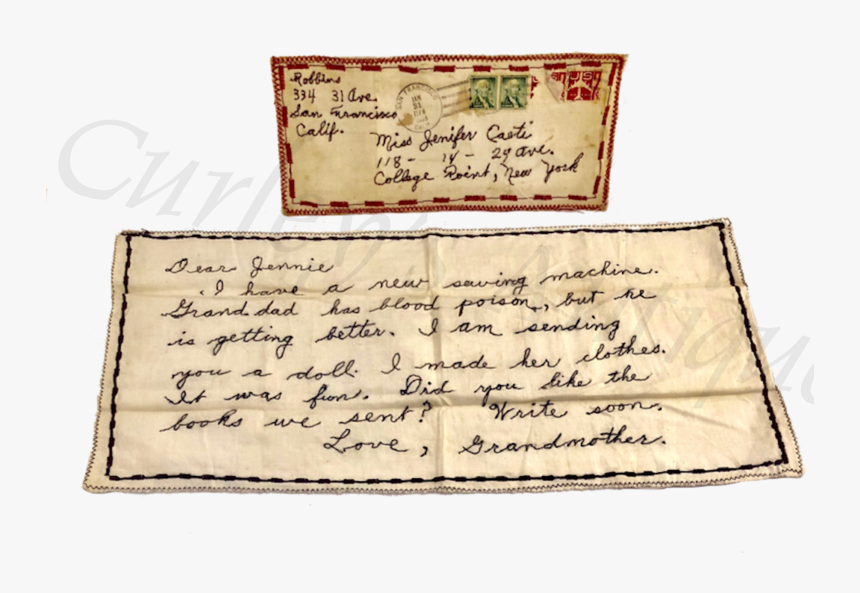 Robbins
334 31 Ave.
San Francisco
Calif.
SAN FRANCISCO
Miss Jenifer Caeti
118 - 14 - 29 Ave.
College Point, New York
Dear Jennie
I have a new saving machine.
Grand dad has blood poison, but he
is getting better. I am sending
you a doll. I made her clothes.
It was fun. Did you like the
books we sent? Write soon.
Love, Grandmother.